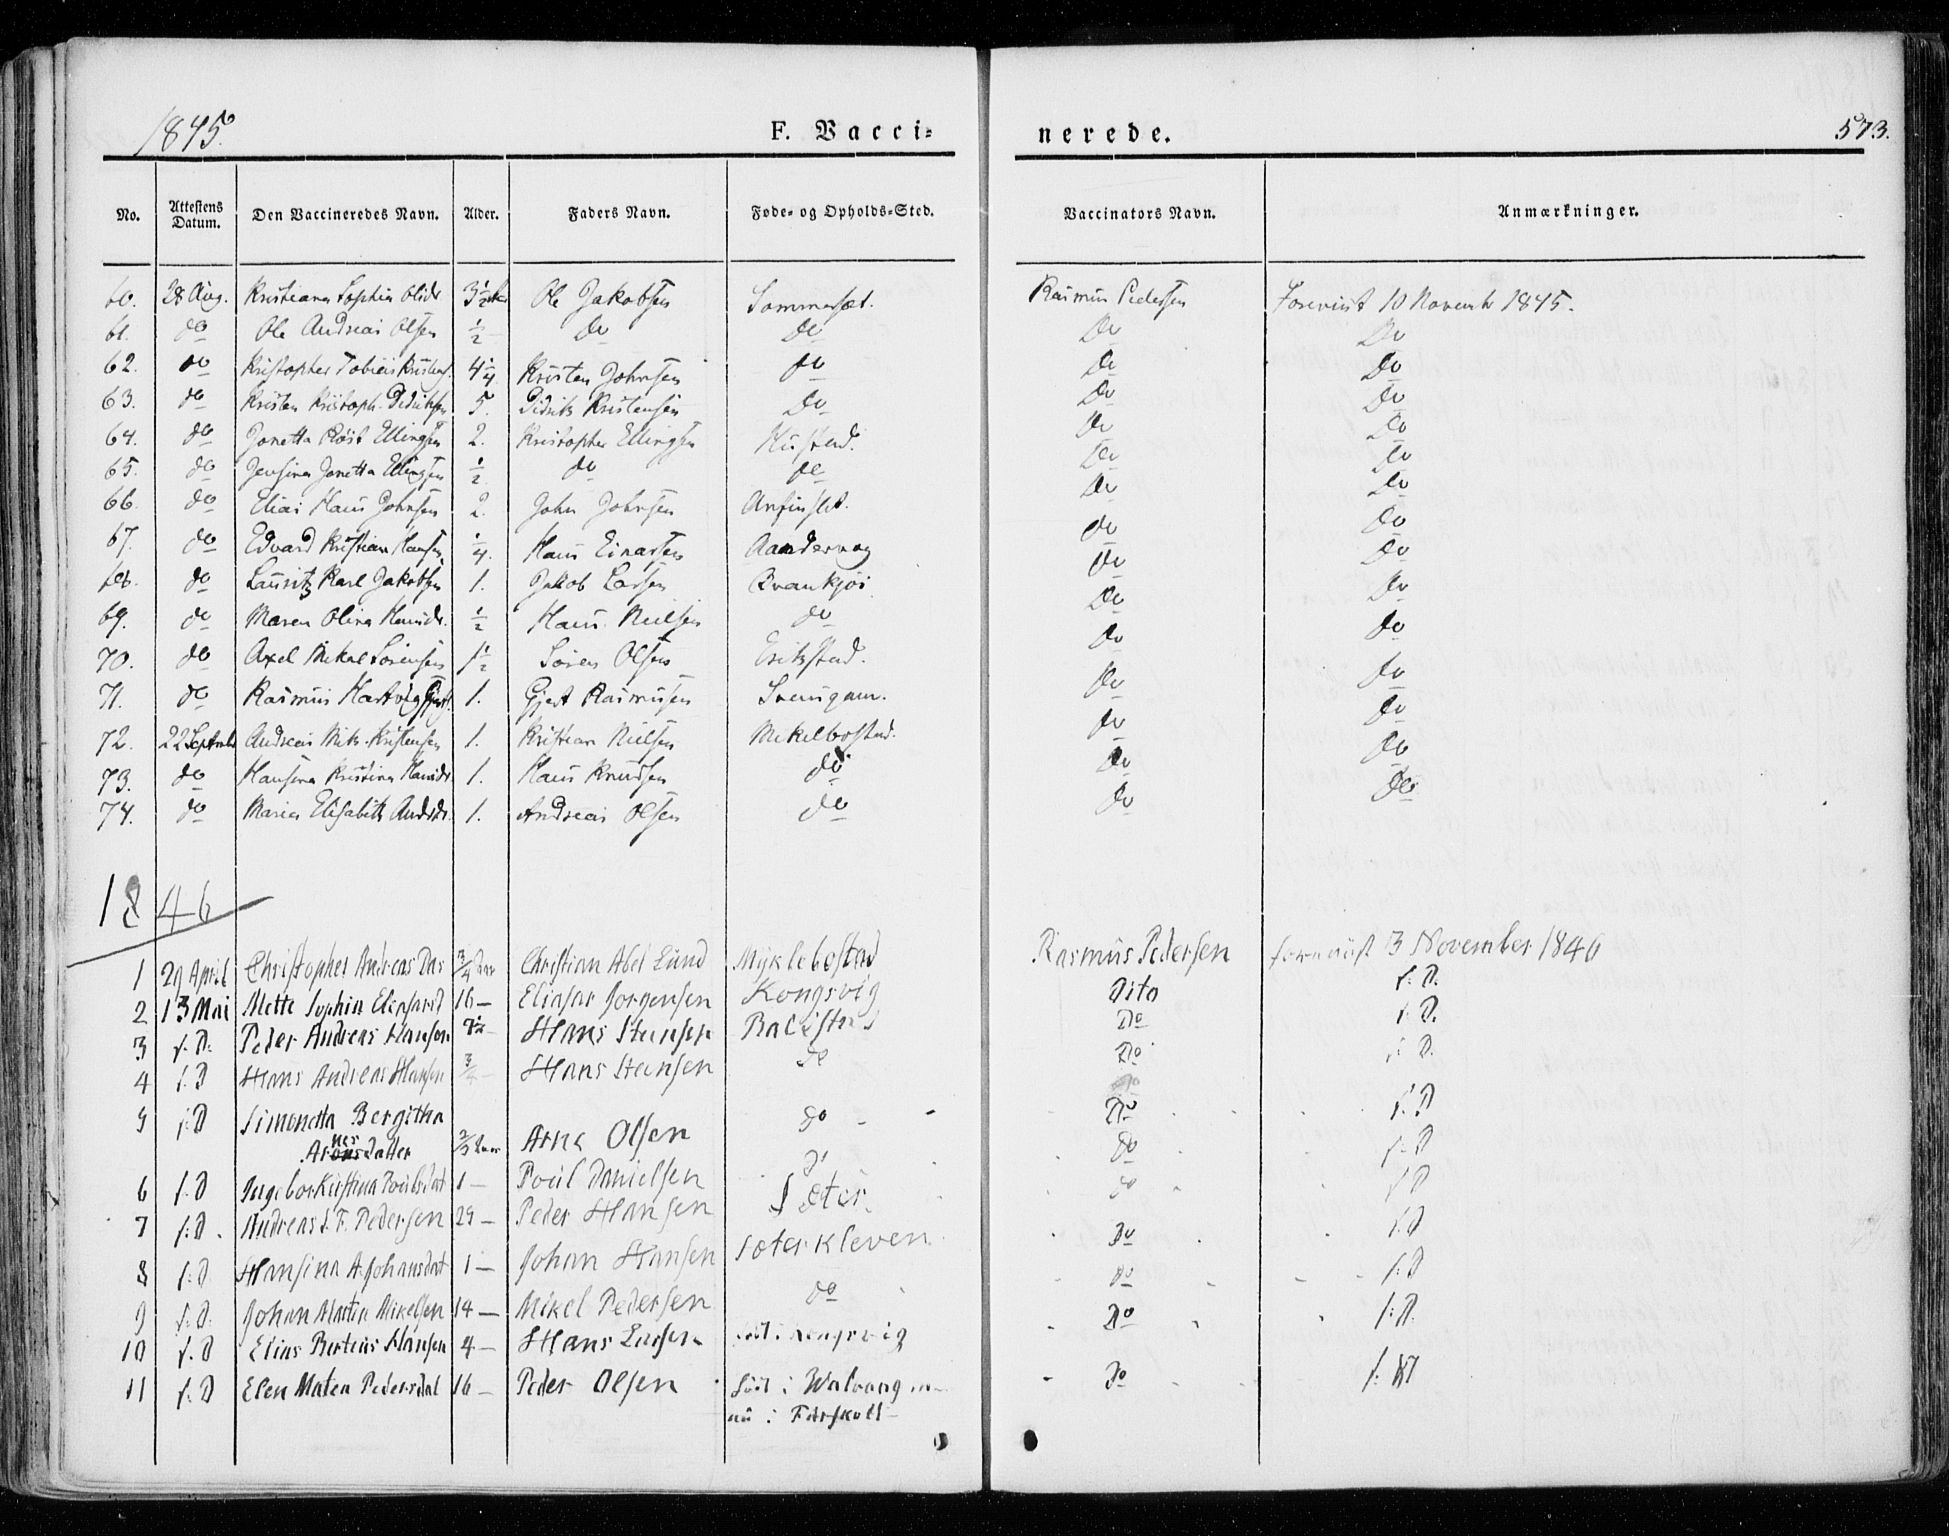 1845.
F. Vacci=
nerede.
573.
No. Attestens Datum. Den Vaccineredes Navn. Alder. Faders Navn. Føde- og Opholds-Sted. Vaccinators Navn. Anmærkninger.
60. 28 Aug. Kristiana Sophia Olsdr 3 1/2 Ole Jakobsen Sommerset. Rasmus Pedersen Forevist 10 Novembr 1845.
61. do Ole Andreas Olsen 1/2 do do Do Do
62. do Kristopher Tobias Kristens. 4 1/4 Kristen Johnsen do Do Do
63. do Kristen Kristoph. Didriksen 5. Didrik Kristensen Do Do Do
64. do Jonetta Röst Ellingsen 2. Kristopher Ellingsen Hustad. Do Do
65. do Jensina Jonetta Ellingsen 1/2 do do Do Do
66. do Elias Hans Johnsen 2. John Johnsen Anfinslet. Do Do
67. do Edvard Kristian Hansen 1/4. Hans Einarsen Aandervaag do Do
68. do Lauritz Karl Jakobsen 1. Jakob Larsen Qvankjøi Do Do
69. do Maren Olina Hansdr. 1/2 Hans Nielsen do Do Do
70. do Axel Mikal Sörensen 1 1/2 Sören Olsen Erikstad. Do do
71. do Rasmus Hartvig Gjests. 1. Gjest Rasmusen Svensgam. Do Do
72. 22 Septembr Andreas Nik. Kristensen 1. Kristian Nielsen Mikelbostad. Do Do
73. do Hansina Kristina Hansdr. 1. Hans Knudsen do Do Do
74. do Maria Elisabeth Andrdr. 1. Andreas Olsen do Do Do
1846
1 29 April Christopher Andreas Das 3/4 Aar Christian Abel Lund Myklebostad Rasmus Pedersen forevist 3 November 1846
2 13 Mai Mette Sophia Eliasard 16 — Eliasar Jorgensen Kongsvig Dito f: D.
3 f. D. Peder Andreas Hansen Hans Hansen Do f: D.
4 f. D Hans Andreas Hansen 3/4 — Hans Hansen do Do f: D.
5 f: D Simonetta Bergitha do Do f: D
Arnesdatter 2/3 Aar Arne Olsen do f: D
6 f. D Ingebor Kirstina Poulsdat 1 — Poul Danielsen do do f: D
7 f: D. Andreas S. F. Pedersen 29 — Peder Hansen Sæter. Do f: D
8 f: D. Hansina A. Johansdat 1 — Johan Hansen Sæterkleven Do f: D
9 f: D. Johan Martin Mikelsen 14 — Mikel Pedersen do Do f: D.
10 f. D Elias Berteus Hansen 4 — Hans Larsen föd i Kongsvig
11 f: D Elen Maten Pedersdat 16 — Peder Olsen föd i Walvaag Do f: D
nu i Forskoll